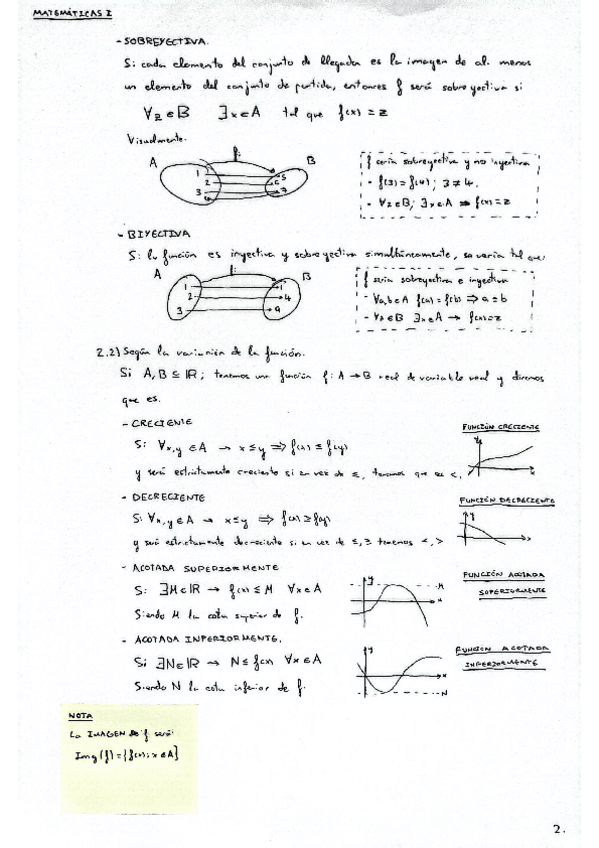 MATEMÁTICAS I
- SOBREYECTIVA.
Si cada elemento del conjunto de llegada es la imagen de al menos
un elemento del conjunto de partida, entonces f será sobreyectiva si
∀z∈B ∃x∈A tal que f(x) = z
Visualmente.
A f: B
1
2
3
4
5
6
7
f sería sobreyectiva y no inyectiva
- f(3) = f(4); 3 ≠ 4.
- ∀z∈B; ∃x∈A ⇒ f(x) = z
- BIYECTIVA
Si la función es inyectiva y sobreyectiva simultáneamente, se vería tal que:
A f: B
1 1
2 4
3 9
f sería sobreyectiva e inyectiva
- ∀a,b∈A f(a) = f(b) ⇒ a = b
- ∀z∈B ∃x∈A → f(x) = z
2.2) Según la variación de la función.
Si A, B ⊆ ℝ; tenemos una función f: A → B real de variable real y diremos
que es.
- CRECIENTE
Si ∀x,y ∈A → x ≤ y ⇒ f(x) ≤ f(y)
y será estrictamente creciente si en vez de ≤, tenemos que es <.
FUNCIÓN CRECIENTE
y
x
- DECRECIENTE
Si ∀x,y∈A → x ≤ y ⇒ f(x) ≥ f(y)
y será estrictamente decreciente si en vez de ≤, ≥ tenemos <, >
FUNCIÓN DECRECIENTE
y
x
- ACOTADA SUPERIORMENTE
Si ∃M∈ℝ → f(x) ≤ M ∀x∈A
Siendo M la cota superior de f.
FUNCIÓN ACOTADA
SUPERIORMENTE
y
M
x
- ACOTADA INFERIORMENTE.
Si ∃N∈ℝ → N ≤ f(x) ∀x∈A
Siendo N la cota inferior de f.
FUNCION ACOTADA
INFERIORMENTE
y
x
N
NOTA
La IMAGEN de f será:
Img(f) = {f(x); x∈A}
2.